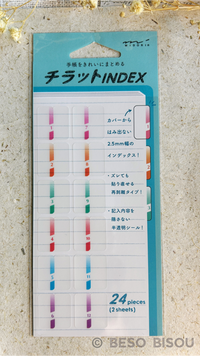 MIDORI
手帳をきれいにまとめる
チラットINDEX
カバーから
はみ出ない
2.5mm幅の
インデックス!
・ズレても
貼り直せる
再剥離タイプ!
・記入内容を
隠さない
半透明シール!
1 7
2 8
3 9
4 10
5 11
6 12
24 pieces
(2 sheets)
© BESO BISOU